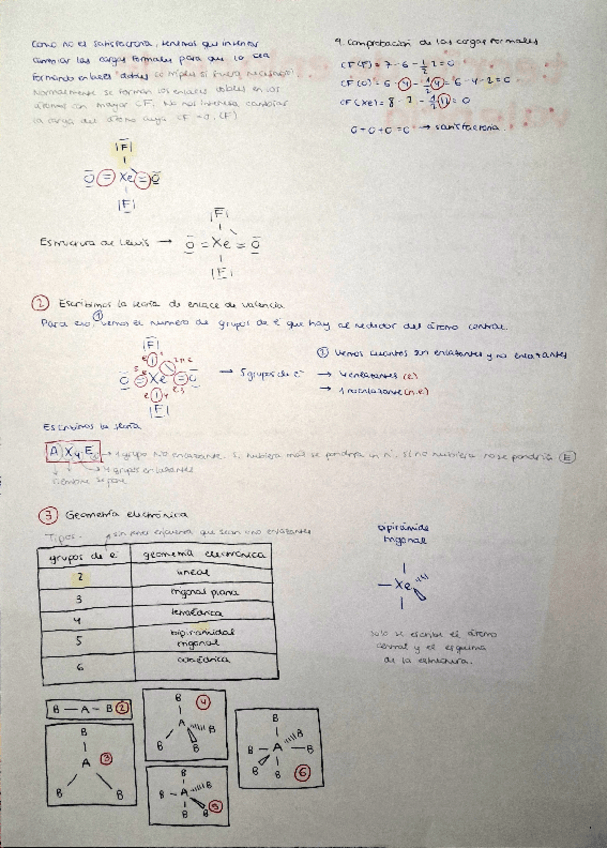 Como no es satisfactoria, tenemos que intentar
cambiar las cargas formales para que lo sea
formando enlaces dobles (o triples si fuera necesario)
Normalmente se forman los enlaces dobles en los
átomos con mayor CF. No nos interesa cambiar
la carga del átomo cuya CF = 0. (F)
|F|
O = Xe = O
|F|
Estructura de Lewis →
|F|
O = Xe = O
|F|
4. Comprobación de las cargas formales
CF(F) = 7 - 6 - 1/2 2 = 0
CF(O) = 6 - 4 - 1/2 4 = 6 - 4 - 2 = 0
CF(Xe) = 8 - 2 - 1/2 12 = 0
0 + 0 + 0 = 0 → satisfactoria.
② Escribimos la teoría de enlace de valencia
Para eso ① vemos el número de grupos de e⁻ que hay alrededor del átomo central.
|F|
O = Xe = O
|F|
→ 5 grupos de e⁻
① Vemos cuantos son enlazantes y no enlazantes
→ 4 enlazantes (e)
→ 1 no enlazante (n.e)
Escribimos la teoría
A X4 E → 1 grupo NO enlazante. Si hubiera más se pondría un nº, si no hubiera no se pondría E
4 grupos enlazantes
siempre se pone
③ Geometría electrónica
Tipos:
grupos de e⁻ geometría electrónica
2 lineal
3 trigonal plana
4 tetraédrica
5 bipiramidal trigonal
6 octaédrica
bipirámide
trigonal
Xe
Solo se escribe el átomo
central y el esquema
de la estructura.
B - A - B ②
B A B B ③
B A B B B ④
B B - A B B B ⑤
B B B - A - B B B ⑥